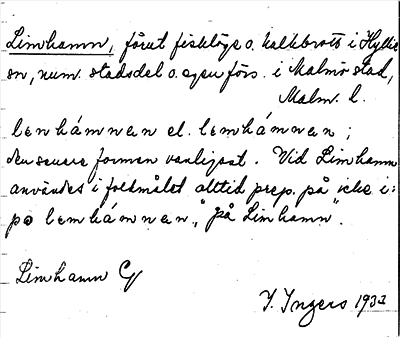 Limhamn, förut fiskläge o. kalkbrott i Hyllie
sn, num. stadsdel o. egen förs. i Malmö stad,
Malm. l.
lenhámnen el. lemhámnen;
den senare formen vanligast. Vid Limhamn
användes i folkmålet alltid prep. på icke i:
po lemhámnen, "på Limhamn".
Limhamn Cf
I. Ingers 1932